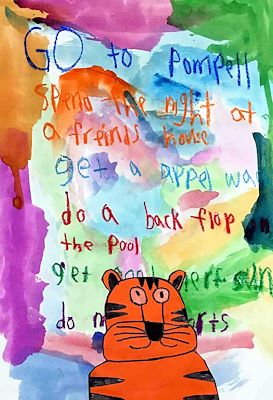 GO to Pompeii
Spend the night at
a freinds house
get a appel wa
do a back flop
the pool
get
do